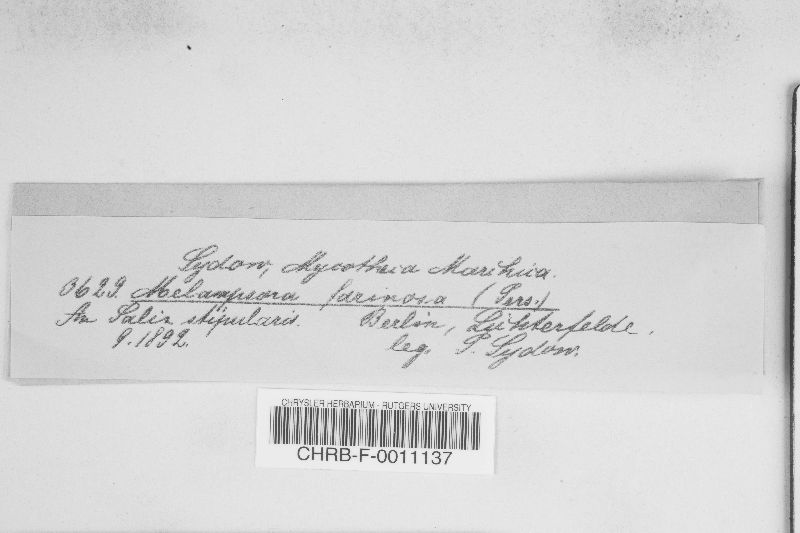 Sydow, Mycotheca Marchica.
0629. Melampsora farinosa (Pers.)
An Salix stipularis. Berlin, Lichterfelde.
9.1892. leg. P. Sydow.
CHRYSLER HERBARIUM - RUTGERS UNIVERSITY
CHRB-F-0011137